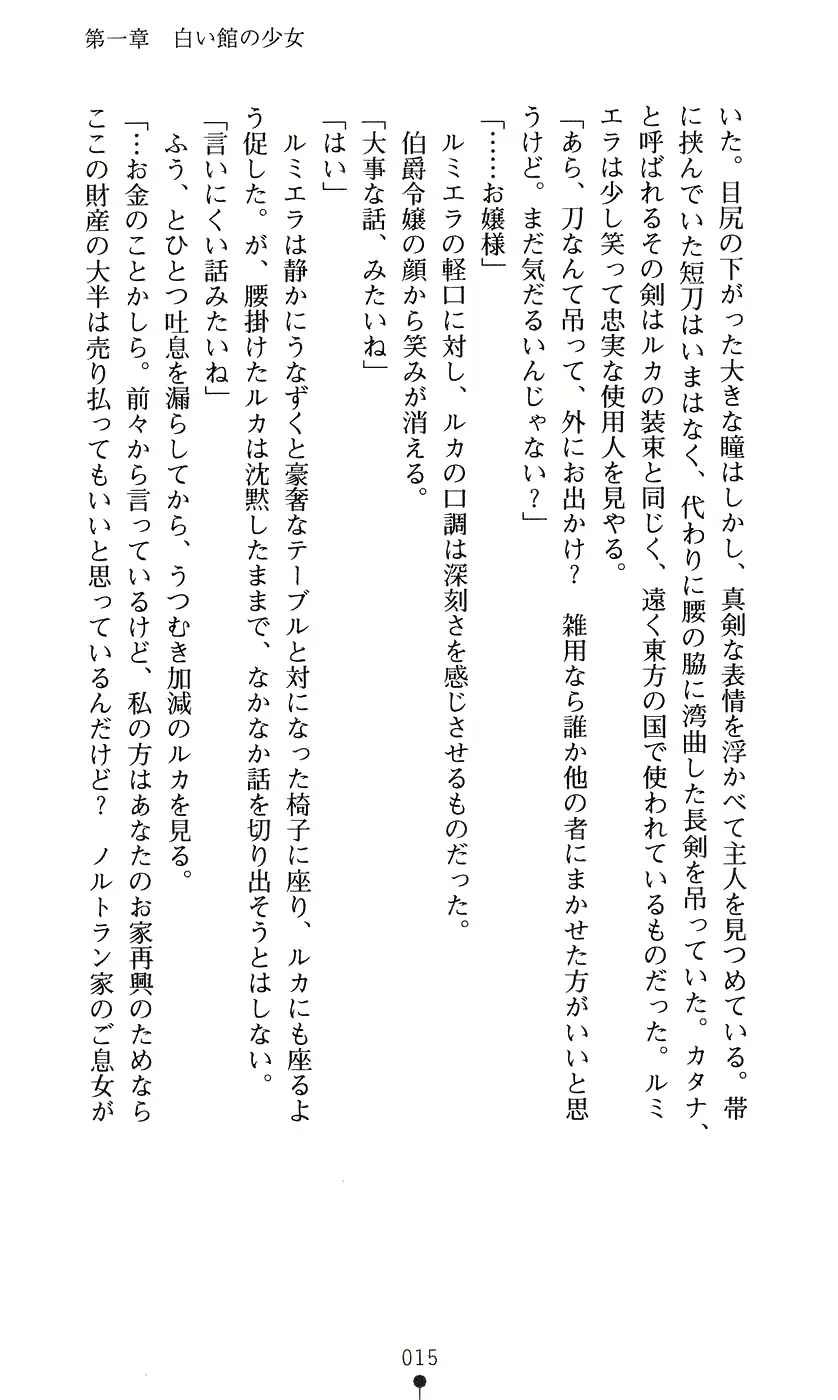 第一章　白い館の少女
いた。目尻の下がった大きな瞳はしかし、真剣な表情を浮かべて主人を見つめている。帯
に挟んでいた短刀はいまはなく、代わりに腰の脇に湾曲した長剣を吊っていた。カタナ、
と呼ばれるその剣はルカの装束と同じく、遠く東方の国で使われているものだった。ルミ
エラは少し笑って忠実な使用人を見やる。
「あら、刀なんて吊って、外にお出かけ？　雑用なら誰か他の者にまかせた方がいいと思
うけど。まだ気だるいんじゃない？」
「……お嬢様」
ルミエラの軽口に対し、ルカの口調は深刻さを感じさせるものだった。
伯爵令嬢の顔から笑みが消える。
「大事な話、みたいね」
「はい」
ルミエラは静かにうなずくと豪奢なテーブルと対になった椅子に座り、ルカにも座るよ
う促した。が、腰掛けたルカは沈黙したままで、なかなか話を切り出そうとはしない。
「言いにくい話みたいね」
ふう、とひとつ吐息を漏らしてから、うつむき加減のルカを見る。
「…お金のことかしら。前々から言っているけど、私の方はあなたのお家再興のためなら
ここの財産の大半は売り払ってもいいと思っているんだけど？　ノルトラン家のご息女が
015